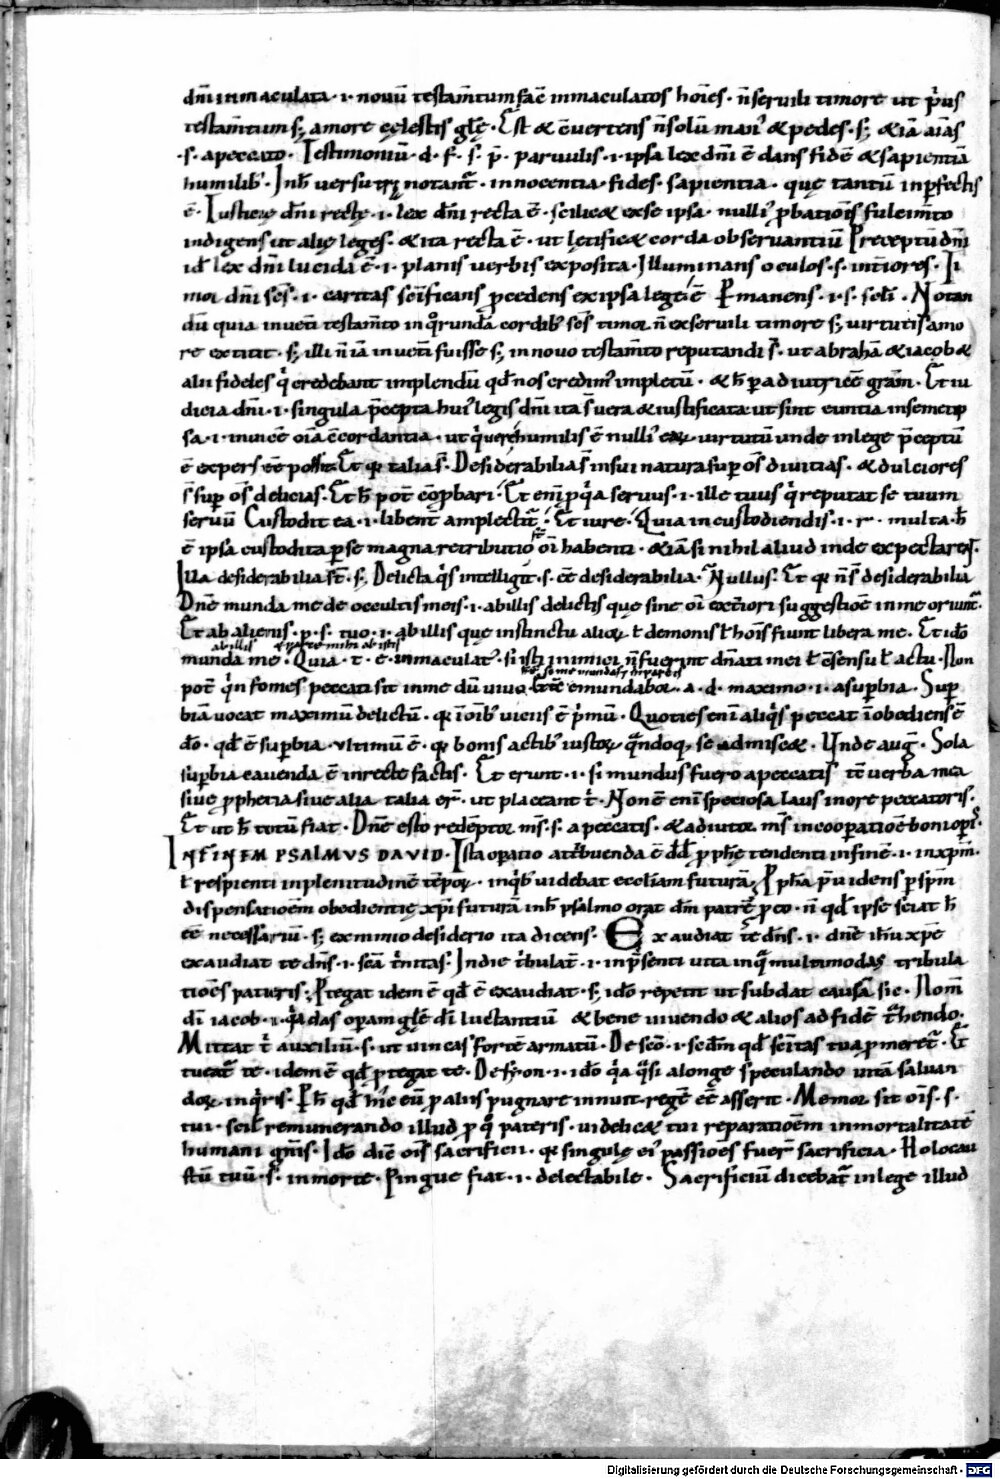 dñi inmaculata · i · nouũ testam̃tum facẽ inmaculatos hoĩes · ñ seruili timore ut p̾us
testam̃tum sʒ amore cęlestis gl̃ę · Est & c̃uertens ñ solũ man⁹ & pedes · sʒ & iã aĩas
· s · a peccato · Testimoniũ · d · f · s · p̃ · paruulis · i · ipsa lex dñi ẽ dans fidẽ & sapientiã
humilib⁹ · In h̃ uersu triũ notant᷑ · innocentia · fides · sapientia · quę tantũ in p̱fectis
ẽ · Iusticię dñi rectę · i · lex dñi recta ẽ · scilic& ex se ipsa · nulli⁹ p̱batiõis fulcim̃to
indigens ut alię leges · & ita recta ẽ · ut lętific& corda obseruantiũ Preceptũ dñi
id̃ lex dñi lucida ẽ · i · planis uerbis exposita · Illuminans oculos · s · int̃iores · Ti
mor dñi sc̃s · i · caritas sc̃ificans p̱cedens ex ipsa lege ẽ P̱manens · i · s · sc̃li · Notan
dũ quia in uet̃i testam̃to in q̊rundã cordib⁹ sc̃s timor ñ ex seruili timore sʒ uirtutis amo
re extitit · sʒ illi ñ iã in uet̃i fuisse sʒ in nouo testam̃to reputandi s̃ · ut abrahã & iacob &
alii fideles q̾ credebant implendũ qd̃ nos credim⁹ impletũ · & h̃ p̱ adiutricẽ gram̃ · Et iu
dicia dñi · i · singula p̃cepta hui⁹ legis dñi ita s̃ uera & iustificata ut sint cuntia in semetip
sa · i · inuicẽ oĩa c̃cordantia · ut q̾ uere humilis ẽ nulli⁹ eaꝝ uirtutũ unde in lege p̃ceptũ
ẽ expers ẽe possit · Et qr talia s̃ · Desiderabilia s̃ in sui natura sup̱ oẽs diuitias · & dulciores
s̃ sup̱ oẽs delicias · Et h̃ pot̃ cõp̱bari · Et eni᷑ p̱ q̾a seruus · i · ille tuus q̾ reputat se tuum
seruũ Custodit ea · i · libent̃ amplectit᷑ · Et iure · Quia in custodiendis · i · r · multa · h̃
ẽ ipsa custodita p̱ se magna retributio oĩ habenti · & iã si nihil aliud inde expectaret᷑ ·
Illa desiderabilia s̃t · sʒ Delicta q̾s intelligit · s · ẽe desiderabilia · Nullus · Et qr ñ s̃ desiderabilia
Dñe munda me de occultis meis · i · ab illis delictis quę sine oĩ ext̃iori suggestiõe in me oriunt᷑ ·
Et ab alienis · p · s · tuo · i · ab illis quę instinctu alioꝝ ł demonis ł hoĩs fiunt libera me · Et ido̅
ab illis & parce mihi ab istis
munda me · Quia · t · e · inmaculat⁹ · si isti inimici ñ fuerint dñati mei ł c̃sensu ł actu · Non
pot̃ q̾n fomes peccati sit in me dũ uiuo emundabor · a · d · maximo · i · a superbia · Sup̱
biã uocat maximũ delictũ · qr ĩ oĩb⁹ uiciis ẽ p̾mũ · Quoties eni᷑ aliq̾s peccat ĩobediens ẽ
dõ · qd̃ ẽ sup̱bia · ultimũ ẽ · qr bonis actib⁹ iustoꝝ q̃ndoqʒ se admisc& · Unde aug̃ · Sola
sup̱bia cauenda ẽ in recte factis · Et erunt · i · si mundus fuero a peccatis tc̃ uerba mea
siue p̱phetia siue alia talia er̃ · ut placeant t̾ · Non ẽ eni᷑ speciosa laus in ore peccatoris ·
Et ut h̃ totũ fiat · Dñe esto redẽptor m̃s · s · a peccatis · & adiutor m̃s in cooperatiõe boni op̱is ·
IN FINEM PSALMVS DAVID · Ista oratio attribuenda ẽ dd̃ p̱phę tendenti in finẽ · i · in xp̃m ·
ł respicienti in plenitudinẽ tẽpoꝝ · in q̾b⁹ uidebat eccliam futurã · P̱pha p̃uidens p̱ sp̃m
dispensatiõem obedientię xp̃i futurã in h̃ psalmo orat dm̃ patrẽ p̱ eo · ñ qd̃ ipse sciat h̃
ẽe necessariũ · sʒ ex nimio desiderio ita dicens · Exaudiat te dñs · i · dñe ih̃u xp̃e
exaudiat te dñs · i · sc̃a t̾nitas · In die t̾bulat̃ · i · in p̃senti uita in q̃ multimodas tribula
tiões pateris · P̱tegat idem ẽ qd̃ ẽ exaudiat · sʒ ido̅ repetit ut subdat causã sic · Nom̃
di᷑ iacob · i · q̾a das operam gl̃ę di᷑ luctantiũ & bene uiuendo & alios ad fidẽ t̃hendo ·
Mittat t̾ auxiliũ · s · ut uincas fortẽ armatũ · De sc̃o · i · scd̃m qd̃ sc̃itas tua p̱meret᷑ · Et
tueat᷑ te · idem ẽ qd̃ p̱tegat te · De syon · i · ido̅ q̾a q̾si a longe speculando uitã saluan
doꝝ inq̾ris · P̱ h̃ qd̃ hic eũ p̱ aliis pugnare innuit regẽ ẽe asserit · Memor sit oĩs · s ·
tui · scil̃ remunerando illud p̱ q̊ pateris · uidelic& tui reparatiõem inmortalitatẽ
humani gñis · Ido̅ dic̃ oĩs sacrificii · qr singulę ei⁹ passiões fuer̃ sacrificia · Holocau
stũ tuũ · s · in morte · Pingue fiat · i · delectabile · Sacrificiũ dicebat᷑ in lege illud
Digitalisierung gefördert durch die Deutsche Forschungsgemeinschaft - DFG